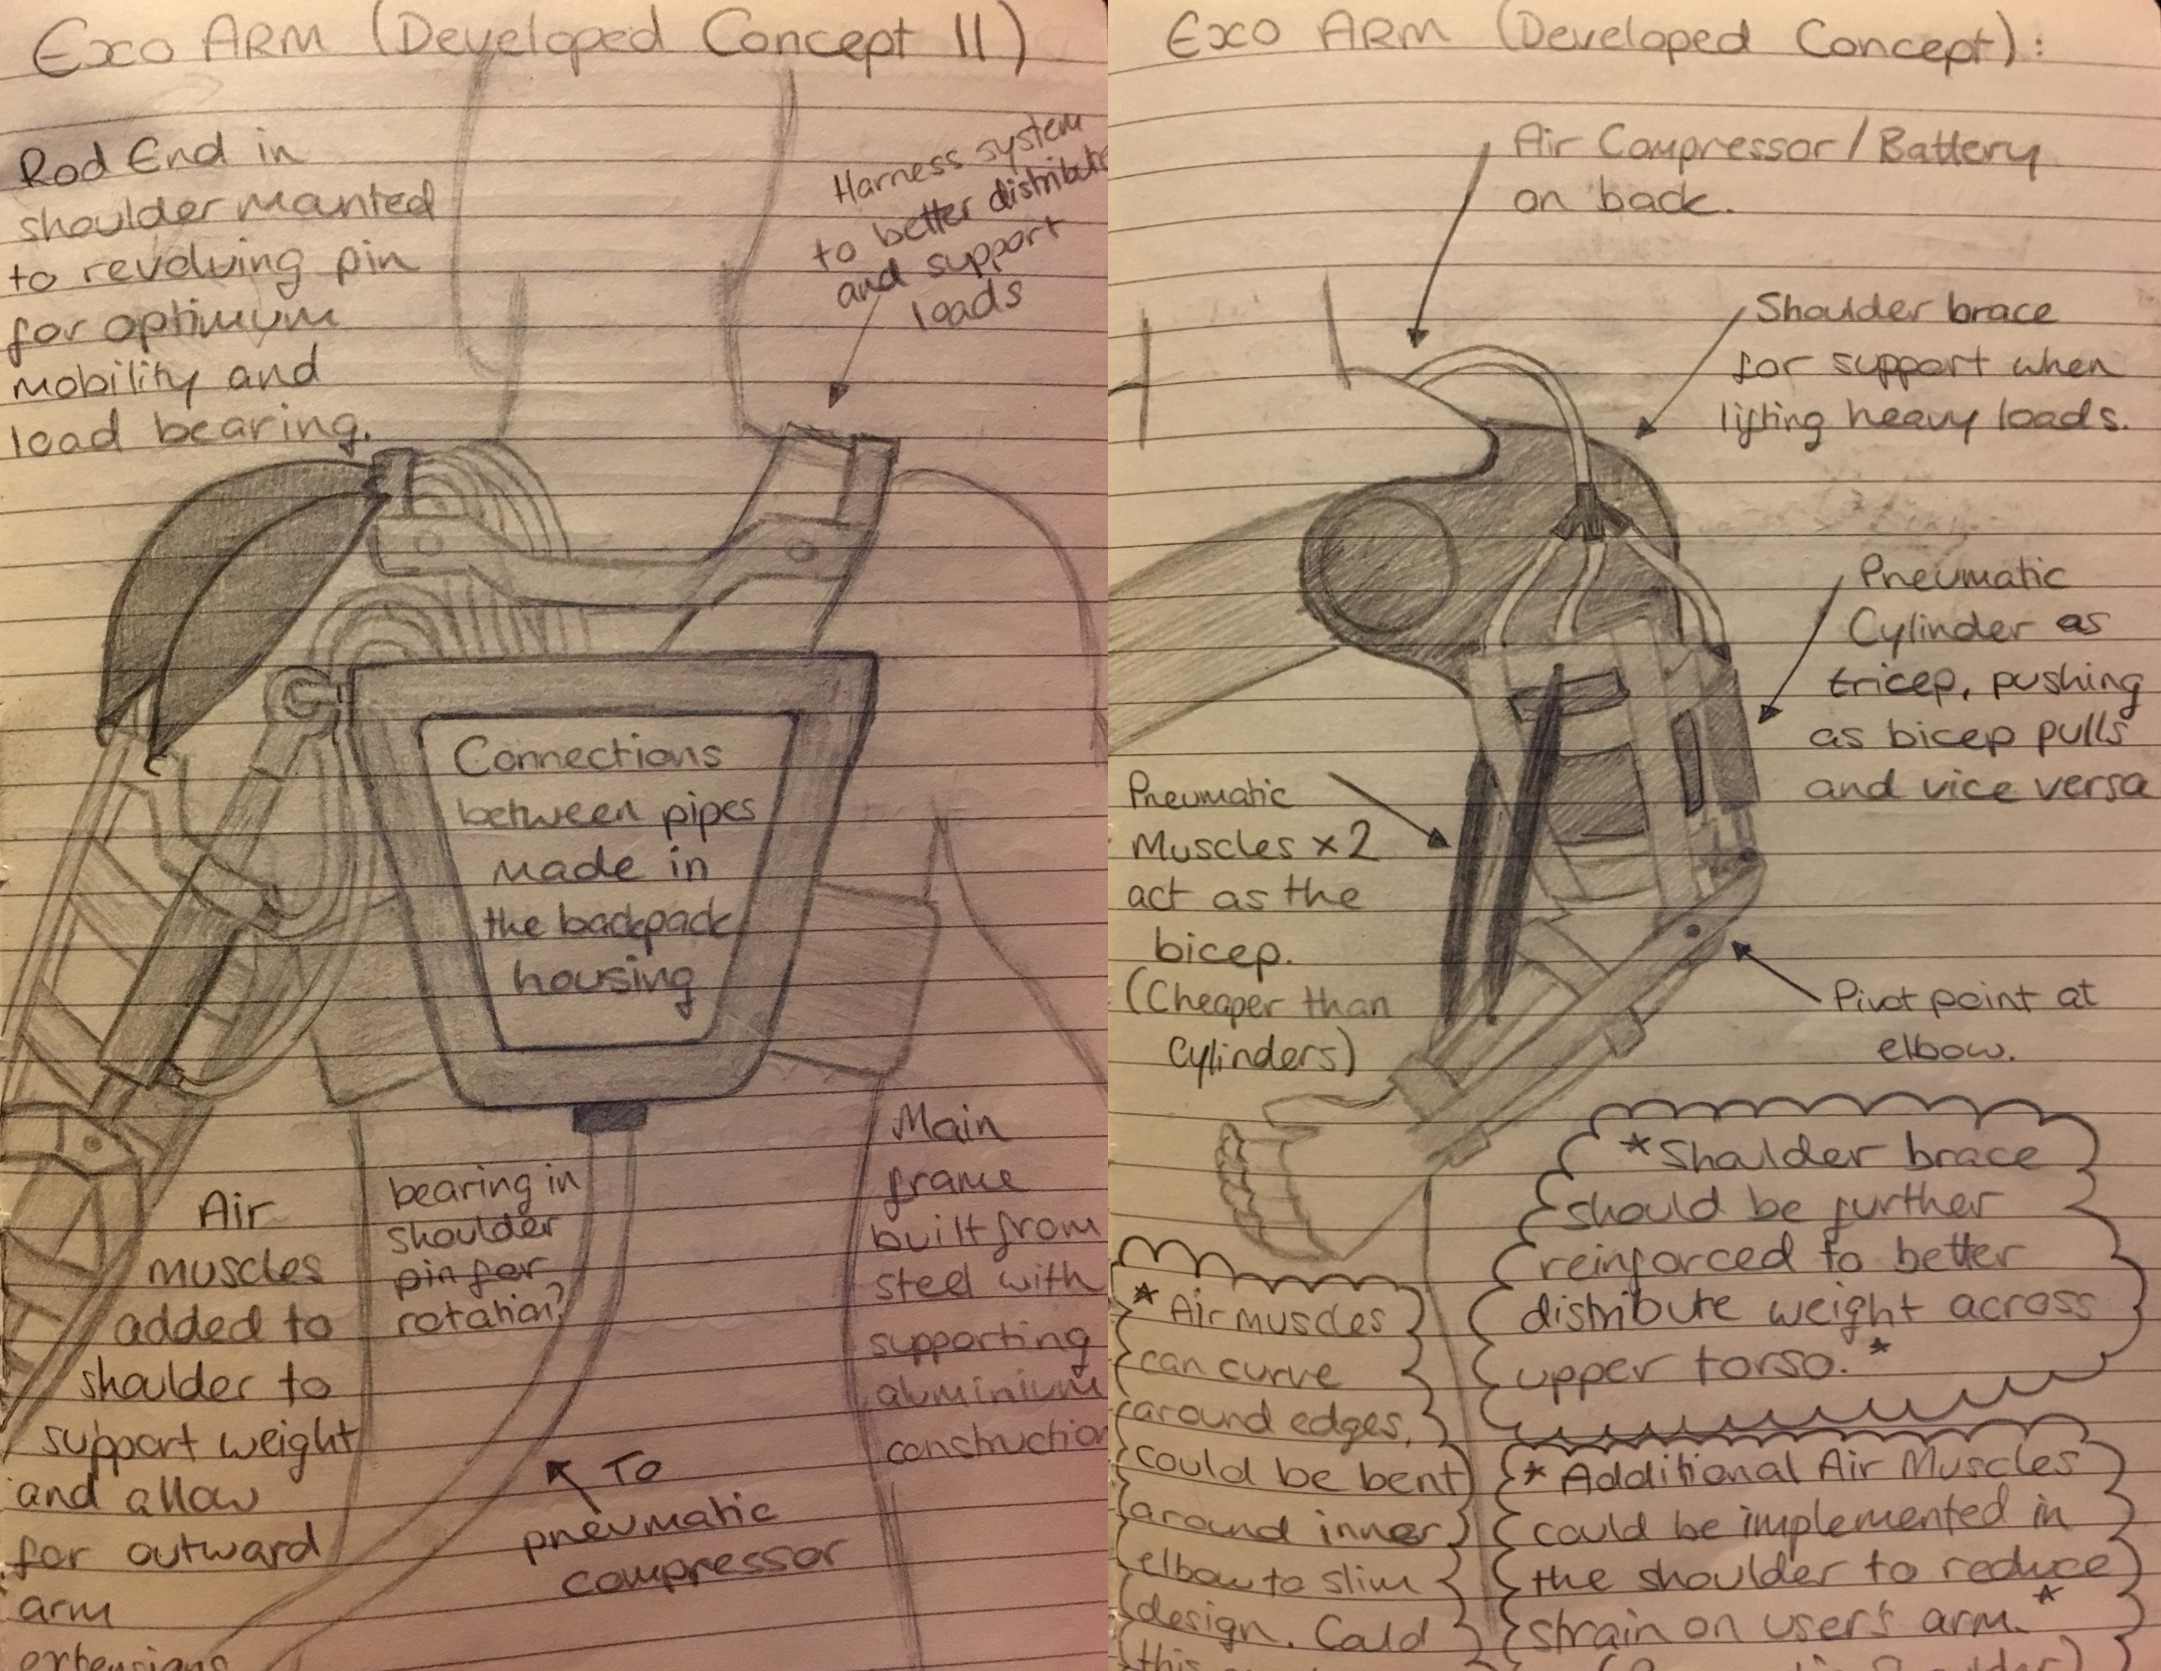 Exo ARM (Developed Concept II)
Rod End in
shoulder mounted
to revolving pin
for optimum
mobility and
load bearing.
Harness system
to better distribute
and support
loads
Connections
between pipes
made in
the backpack
housing
Air
muscles
added to
shoulder to
support weight
and allow
for outward
arm
extensions
bearing in
shoulder
pin for
rotation?
To
pneumatic
compressor
Main
frame
built from
steel with
supporting
aluminium
construction
Exo ARM (Developed Concept):
Air Compressor / Battery
on back.
Shoulder brace
for support when
lifting heavy loads.
Pneumatic
Cylinder as
tricep, pushing
as bicep pulls
and vice versa
Pneumatic
Muscles x2
act as the
bicep.
(Cheaper than
Cylinders)
Pivot point at
elbow.
*Shoulder brace
should be further
reinforced to better
distribute weight across
upper torso.*
* Air muscles
can curve
around edges,
could be bent
around inner
elbow to slim
design. Could
this
* Additional Air Muscles
could be implemented in
the shoulder to reduce
strain on user's arm.*